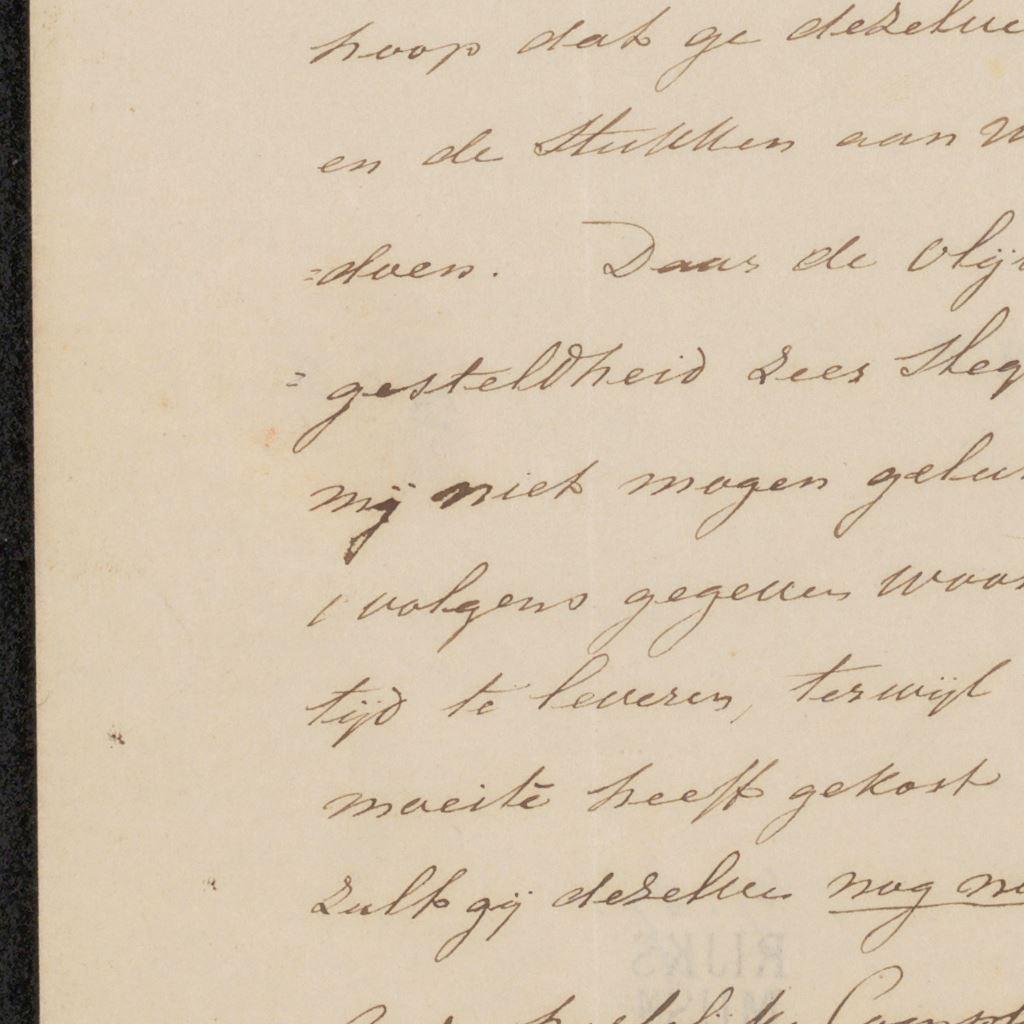 hoop dat ge dezelve
en de stukken aan
=doen. Daar de vlij
= gesteldheid zeer sleg
mij niet mogen gelu
volgens gegeven woor
tijd te leveren, terwijl
moeite heeft gekost
zult gij dezelven nog
RIJKS